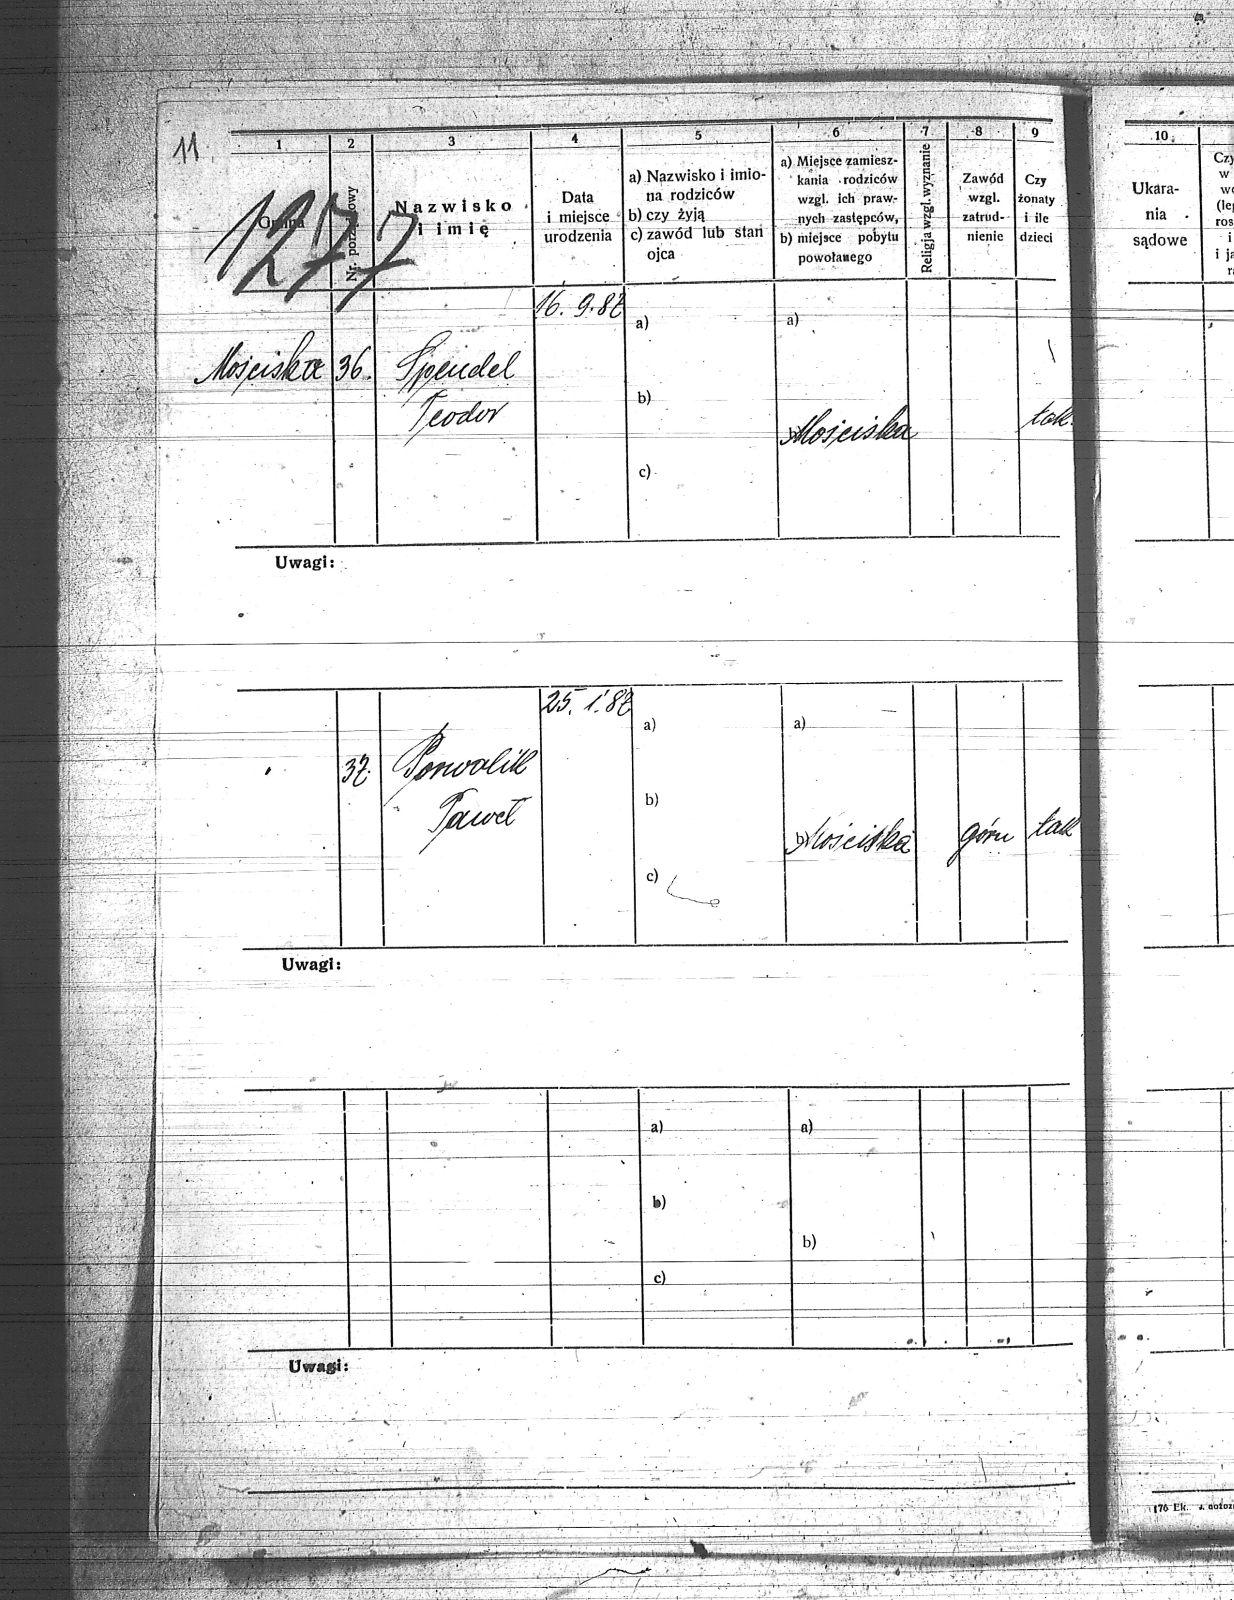 11
1 2 3 4 5 6 7 8 9
1277
Gmina
Nr. porządkowy
Nazwisko
i imię
Data
i miejsce
urodzenia
a) Nazwisko i imio-
na rodziców
b) czy żyją
c) zawód lub stan
ojca
a) Miejsce zamiesz-
kania rodziców
wzgl. ich praw-
nych zastępców,
b) miejsce pobytu
powołanego
Religja wzgl. wyznanie
Zawód
wzgl.
zatrud-
nienie
Czy
żonaty
i ile
dzieci
10
Ukara-
nia
sądowe
Czy
w
(le
ros
i
i ja
16. 9. 87
a) a)
Mościska 36. Spendel
Teodor
b)
b) Mościska
tak
c)
Uwagi:
25. 1. 87
a) a)
37. Porwolik
Paweł
b)
b) Mościska
górn
tak
c)
Uwagi:
a) a)
b)
b)
c)
Uwagi:
176 Ek.